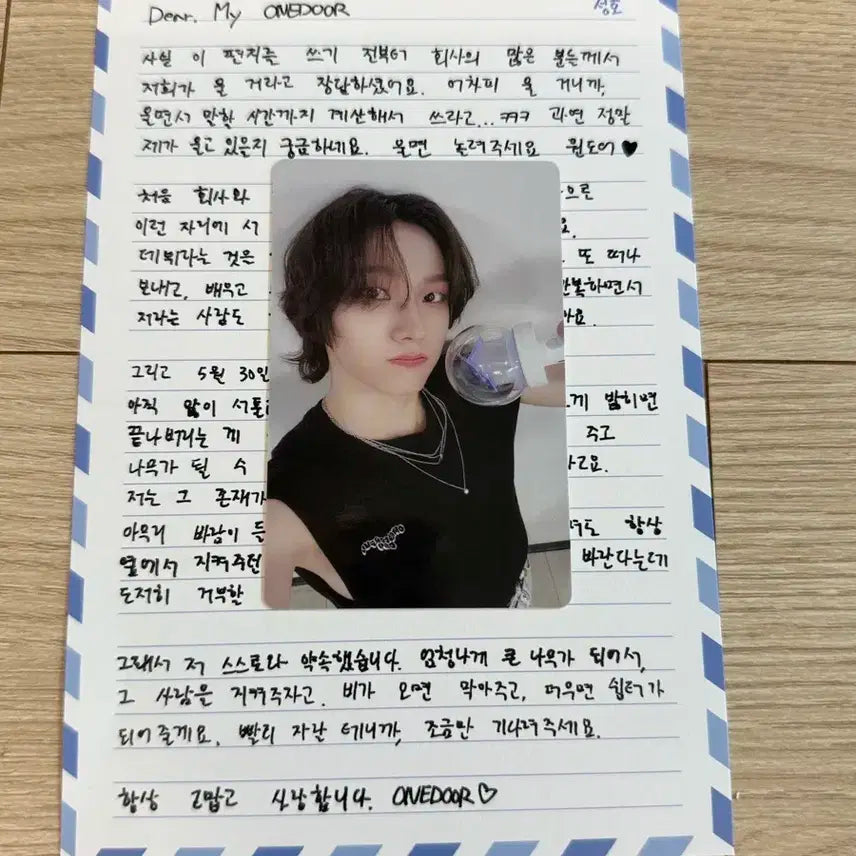 Dear. My ONEDOOR
성호
사실 이 편지를 쓰기 전부터 회사의 많은 분들께서
저희가 울 거라고 장담하셨어요. 어차피 울 거니까,
울면서 말할 시간까지 계산해서 쓰라고... ㅋㅋㅋ 과연 정말
제가 울고 있을지 궁금하네요. 울면 놀려주세요 원도어 ♥
처음 회사와 으른
이런 자리에 서 요.
데뷔라는 것은 또 떠나
보내고, 배우고 반복하면서
저라는 사람도 아요.
그리고 5월 30일
아직 많이 서툴 게 밟히면
끝나버리는 게 주고
나무가 될 수 라고요.
저는 그 존재가
아무리 바람이 든 려도 항상
옆에서 지켜주던 바란다는데
도저히 거부할
그래서 저 스스로와 약속했습니다. 엄청나게 큰 나무가 되어서,
그 사람을 지켜주자고. 비가 오면 막아주고, 더우면 쉼터가
되어 줄게요. 빨리 자랄 테니까, 조금만 기다려주세요.
항상 고맙고 사랑합니다. ONEDOOR♡